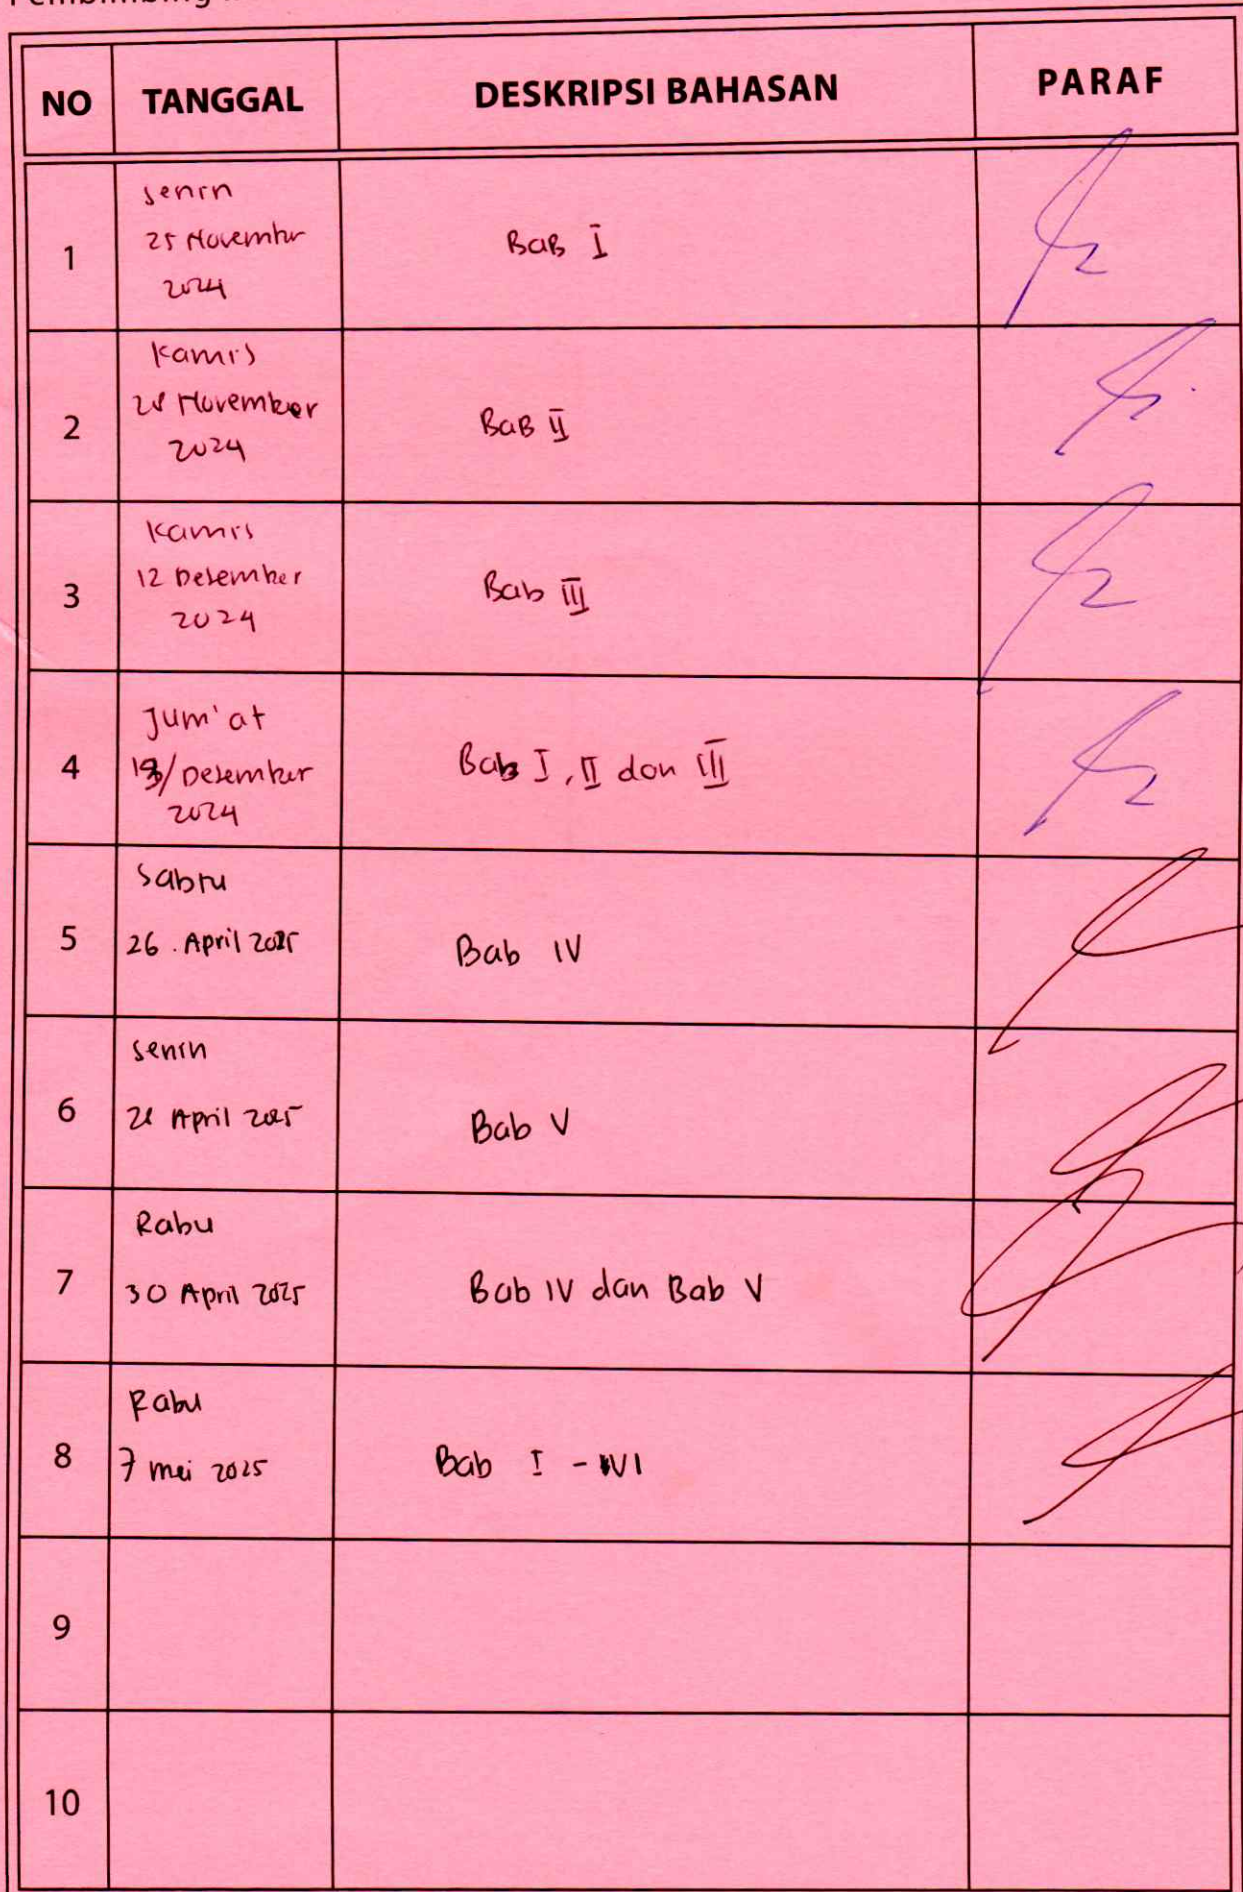 Pembimbing
NO TANGGAL DESKRIPSI BAHASAN PARAF
1
Senin
25 November
2024
Bab I
2
Kamis
28 November
2024
Bab II
3
Kamis
12 Desember
2024
Bab III
4
Jum'at
13/Desember
2024
Bab I, II dan III
5
Sabtu
26. April 2025
Bab IV
6
Senin
28 April 2025
Bab V
7
Rabu
30 April 2025
Bab IV dan Bab V
8
Rabu
7 mei 2025
Bab I - VI
9
10